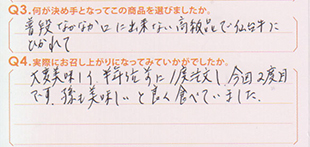 Q3. 何が決め手となってこの商品を選びましたか。
普段なかなか口に出来ない高級品で仙台牛に
ひかれて
Q4. 実際にお召し上がりになってみていかがでしたか。
大変美味しく半年位前に1度注文し、今回2度目
です。孫も美味しいと良く食べていました。